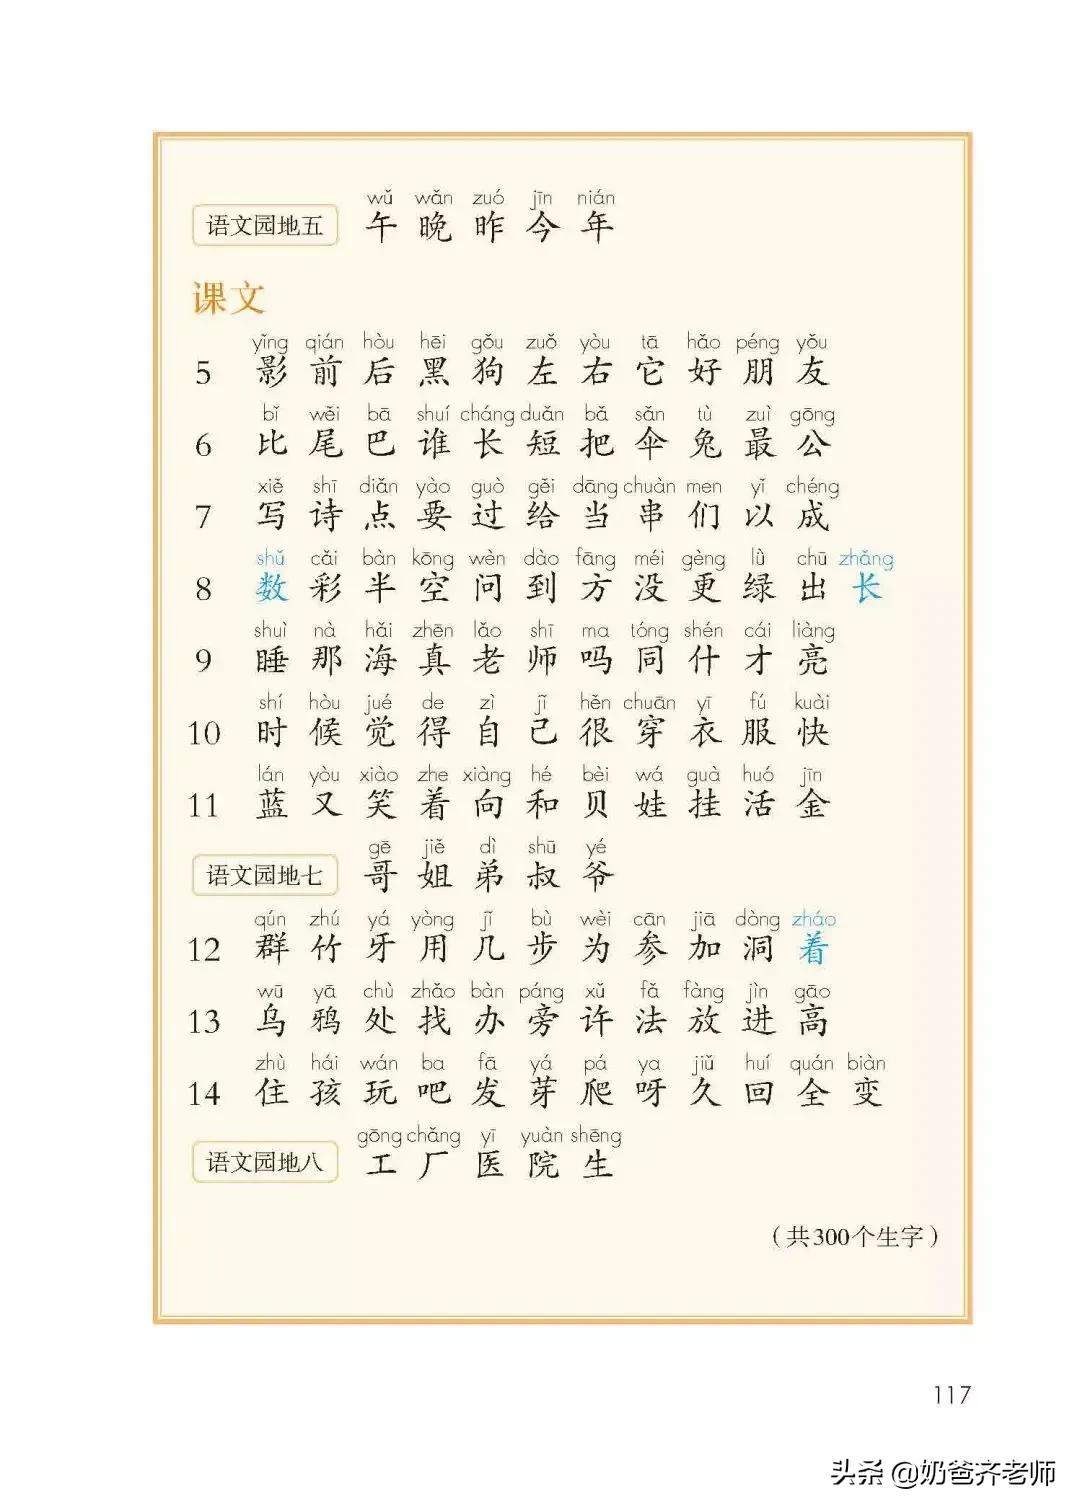 wǔ wǎn zuó jīn nián
语文园地五 午 晚 昨 今 年
课文
yǐng qián hòu hēi gǒu zuǒ yòu tā hǎo péng yǒu
5 影 前 后 黑 狗 左 右 它 好 朋 友
bǐ wěi bā shuí cháng duǎn bǎ sǎn tù zuì gōng
6 比 尾 巴 谁 长 短 把 伞 兔 最 公
xiě shī diǎn yào guò gěi dāng chuàn men yǐ chéng
7 写 诗 点 要 过 给 当 串 们 以 成
shǔ cǎi bàn kōng wèn dào fāng méi gèng lǜ chū zhǎng
8 数 彩 半 空 问 到 方 没 更 绿 出 长
shuì nà hǎi zhēn lǎo shī ma tóng shén cái liàng
9 睡 那 海 真 老 师 吗 同 什 才 亮
shí hòu jué de zì jǐ hěn chuān yī fú kuài
10 时 候 觉 得 自 己 很 穿 衣 服 快
lán yòu xiào zhe xiàng hé bèi wá guà huó jīn
11 蓝 又 笑 着 向 和 贝 娃 挂 活 金
gē jiě dì shū yé
语文园地七 哥 姐 弟 叔 爷
qún zhú yá yòng jǐ bù wèi cān jiā dòng zháo
12 群 竹 牙 用 几 步 为 参 加 洞 着
wū yā chù zhǎo bàn páng xǔ fǎ fàng jìn gāo
13 乌 鸦 处 找 办 旁 许 法 放 进 高
zhù hái wán ba fā yá pá ya jiǔ huí quán biàn
14 住 孩 玩 吧 发 芽 爬 呀 久 回 全 变
gōng chǎng yī yuàn shēng
语文园地八 工 厂 医 院 生
（共300个生字）
117
头条 @奶爸齐老师